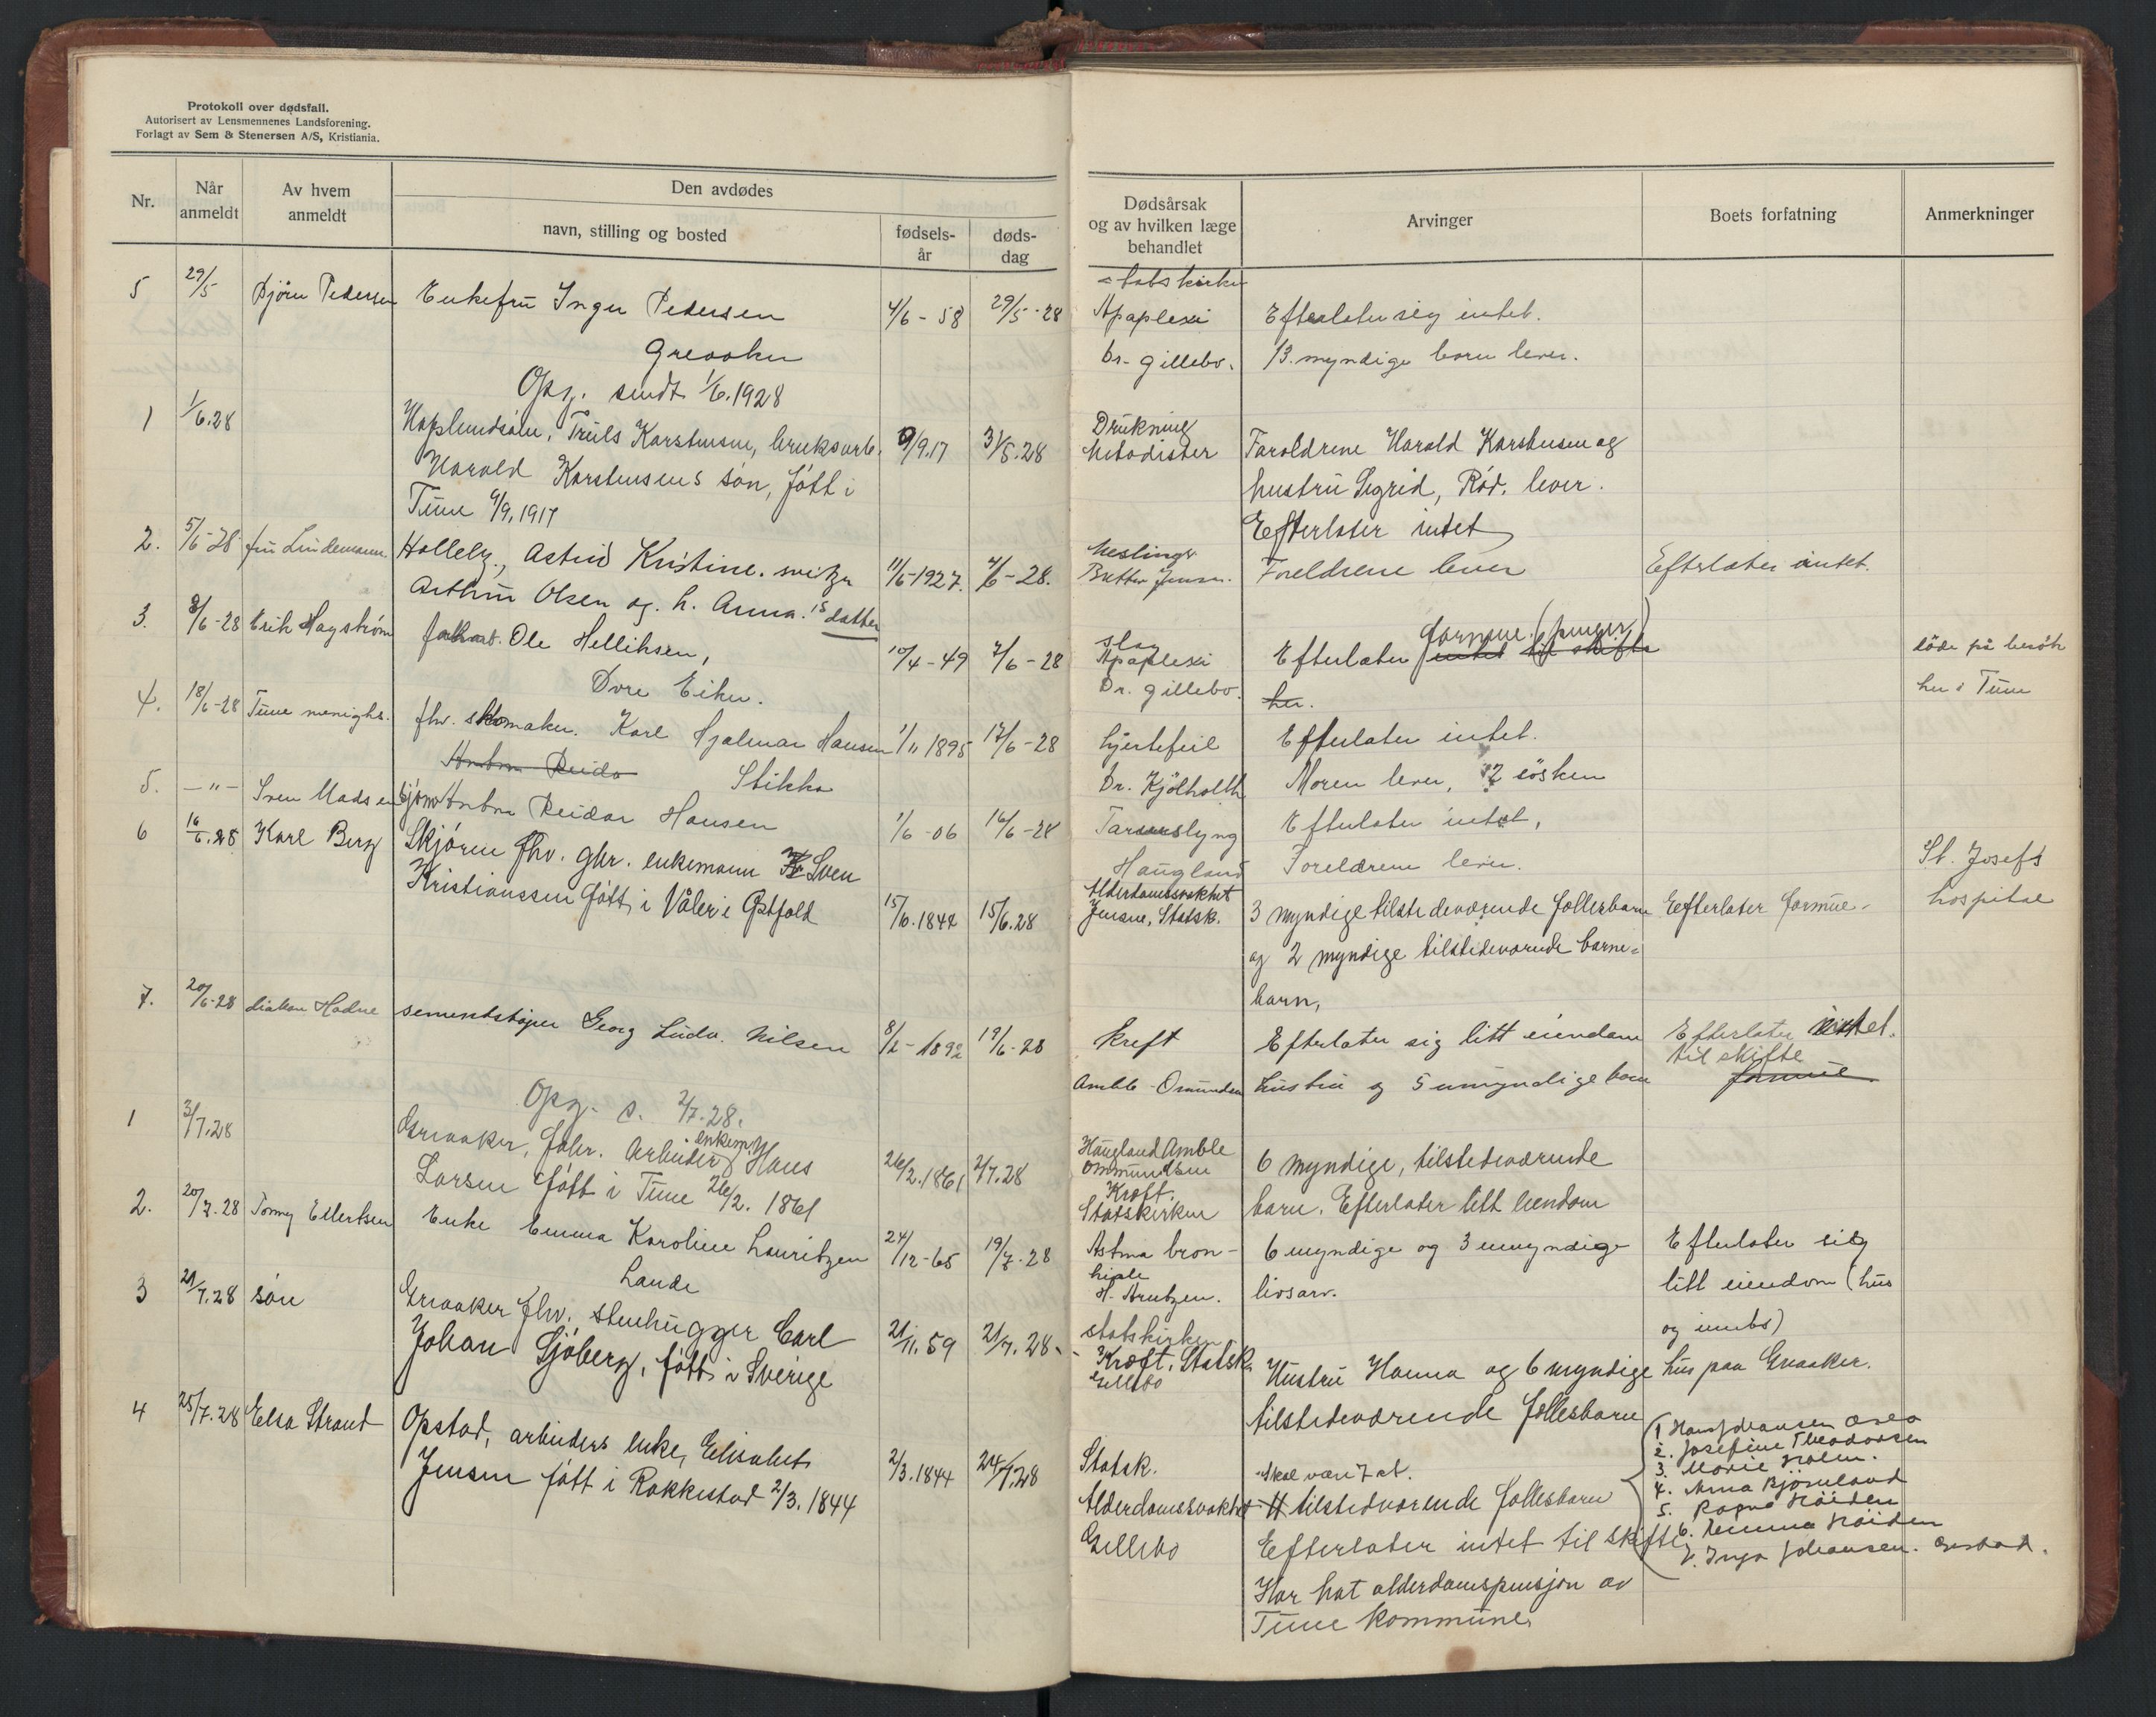 Protokoll over dødsfall.
Autorisert av Lensmennenes Landsforening.
Forlagt av Sem & Stenersen A/S, Kristiania.
Nr.
Når anmeldt
Av hvem anmeldt
Den avdødes
navn, stilling og bosted
fødsels-år
døds-dag
Dødsårsak og av hvilken læge behandlet
Arvinger
Boets forfatning
Anmerkninger
5 29/5 Björn Pedersen Enkefru Inger Pedersen 4/6 - 58 29/5 - 28 Statskirken
Apaplexi Efterlater sig intet.
Greaaker Dr. Gillebo. 13. myndige barn lever.
Opg. sendt 1/6.1928
1 1/6.28 Truls Karstensen, bruksarb. 9/9.17 31/5.28 Drukning
Metodister Foroldrene Harald Karstensen og
Harald Karstensens søn, fött i hustru Sigrid, Röd. lever.
Tune 9/9.1917 Efterlater intet
2. 5/6-28 fru Lindemann. Astrid Kristine. 11/6-1927. 4/6-28. Meslinger
Foreldrene lever Efterlater intet.
Arthur Olsen og h. Anna. datter
3. 8/6-28 Erik Hagström Ole Helliksen, 10/4-49 7/6-28 slag
Apaplexi Efterlater formue. (penger) intet til skifte döde på besök
Dr. Gillebo. her. her i Tune
4. 18/6-28 Tune menighs. fhv. skomaker. Karl Hjalmar Hansen 1/11 1895 17/6-28 hjertefeil Efterlater intet.
Stikka Dr. Kjölholth Moren lever, 2 sösken
5. -"- Sven Madsen Reidar Hansen 1/6-06 16/6-28 Efterlater intet,
Haugland Foreldrene lever. St. Josefs
hospital
6 16/6.28 Karl Berg Skjøren fhv. gbr. enkemann Sven
Kristianssen fött i Våler i Østfold 15/6.1842 15/6.28 Alderdomssvakhet
Jensen, Statsk. 3 myndige tilstedeværende fellesbarn Efterlater formue.
og 2 myndige tilstedeværende barne-
barn,
7. 20/6-28 diakon Hadne sementstöper Georg Ludv. Nilsen 8/2-1892 19/6-28 Kreft Efterlater sig litt eiendom Efterlater intet.
til skifte
Amble-Omundsen hustru og 5 umyndige barn formue
Opg. s. 2/7.28.
1 3/7.28 Greaaker, fabr. arbeider enkem. Hans 26/2.1861 2/7.28 Haugland Amble
Ommundsen 6 myndige, tilstedeværende
Larsen fött i Tune 26/2. 1861 Kræft.
Statskirken barn. Efterlater litt eiendom
2. 20/7.28 Tommy Ellertsen Enke Emma Karoline Lauritzen 24/12-65 19/7-28 Astma bron- 6 myndige og 3 umyndige Efterlater sig
Lande hiale
H. Arntzen. livsarv. litt eiendom (hus
statskirken og innbo)
3 21/7.28 søn Greaaker fhv. stenhugger Carl
Johan Sjöberg, fött i Sverige 21/11.59 21/7.28. Kræft, Statsk.
Gillebo Hustru Hanna og 6 myndige hus paa Greaaker.
tilstedeværende fellesbarn
4 25/7.28 Elsa Strand Opstad, arbeiders enke, Elisabet
Jensen fött i Rakkestad 2/3.1844 2/3.1844 24/7.28 Statsk. Skal være 7 st.
Alderdomssvakhet tilstedeværende fellesbarn
Gillebo Efterlater intet til skifte
Har hat alderdomspensjon av
Tune kommune
1 Hans Johansen
2. Josefine Theodorsen
3. Marie Holm.
4. Anna Björnland
5. Ragna Höiden
6. Emma Höiden
7. Inga Johansen.